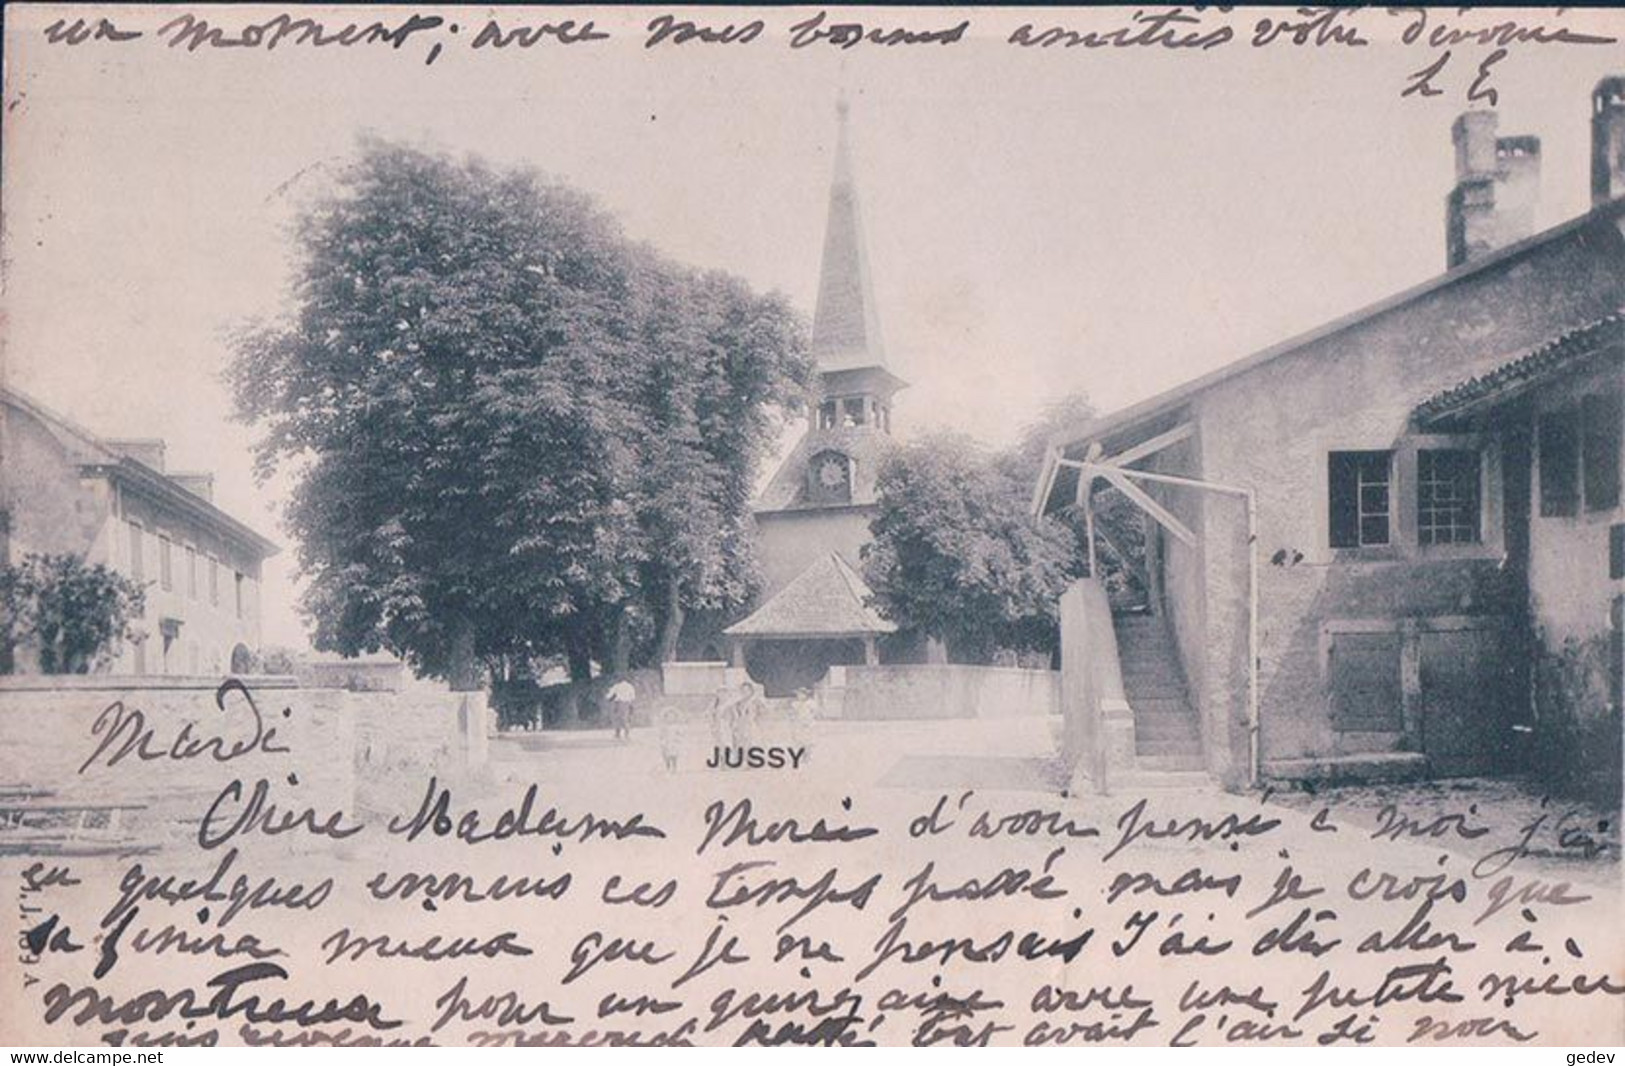 un moment; avec mes bonnes amitiés votre dévouée
L E
Mardi
JUSSY
Chère Madame Merci d'avoir pensé à moi j'ai
eu quelques ennuis ces temps passé mais je crois que
sa finira mieux que je ne pensais J'ai dû aller à
montreux pour un quinzaine avec une petite nièce
suis revenue mercredi passé tout avait l'air si noir
J.J. 1051
Delcampe.net
gedev